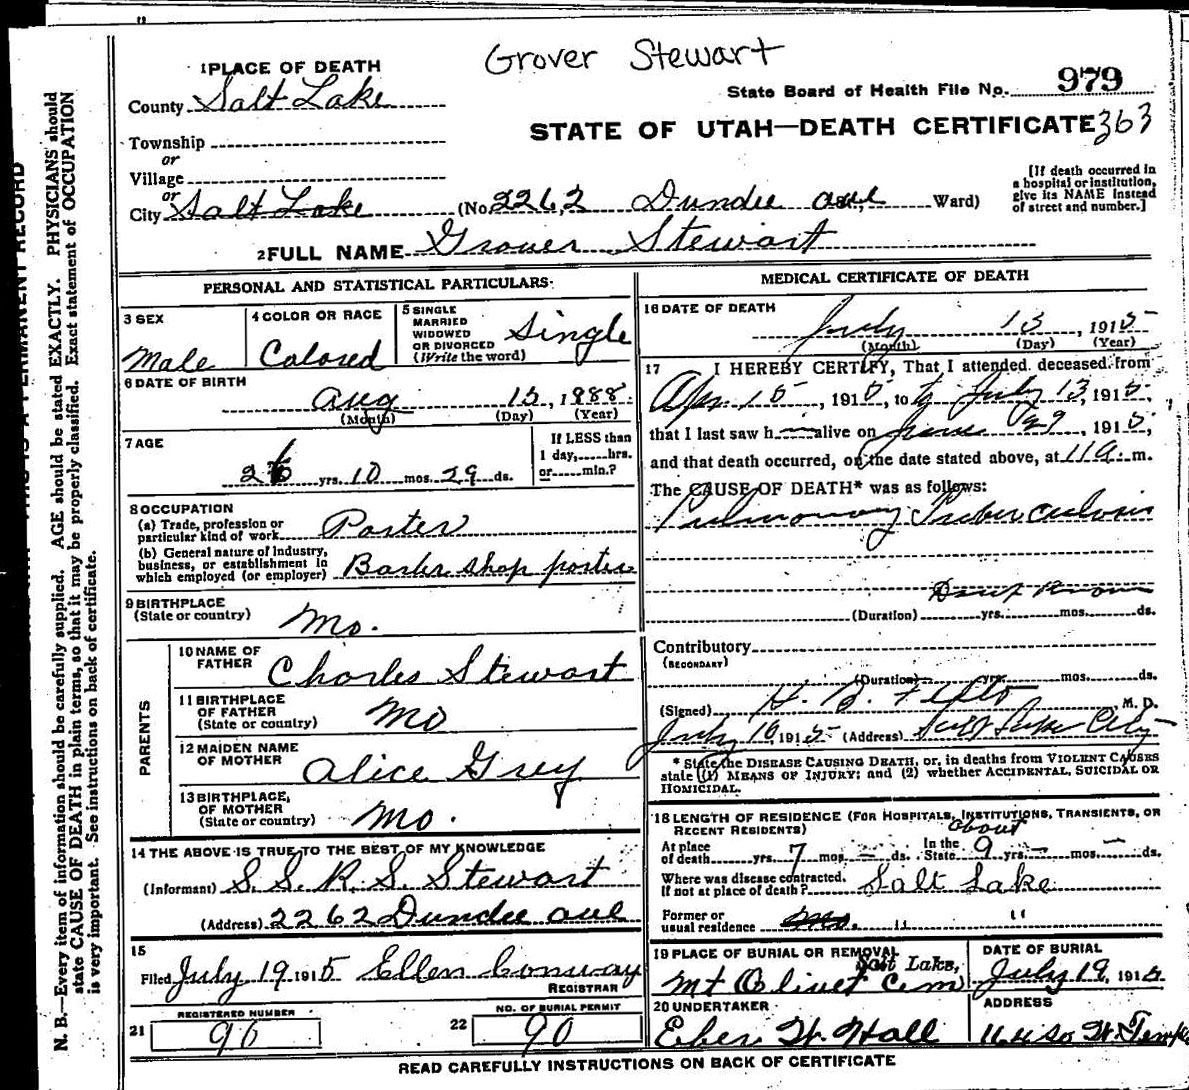 Grover Stewart
1 PLACE OF DEATH
County Salt Lake
State Board of Health File No. 979
STATE OF UTAH—DEATH CERTIFICATE 363
Township
or
Village
or
City Salt Lake (No. 2262 Dundee ave Ward)
[If death occurred in a hospital or institution, give its NAME instead of street and number.]
2 FULL NAME Grover Stewart
PERSONAL AND STATISTICAL PARTICULARS:
3 SEX
Male
4 COLOR OR RACE
Colored
5 SINGLE
MARRIED
WIDOWED
OR DIVORCED
(Write the word)
Single
6 DATE OF BIRTH
Aug 15, 1888
(Month) (Day) (Year)
7 AGE
26 yrs. 10 mos. 29 ds.
If LESS than
1 day, hrs.
or min.?
8 OCCUPATION
(a) Trade, profession or
particular kind of work Porter
(b) General nature of Industry,
business, or establishment in
which employed (or employer) Barber shop porter
9 BIRTHPLACE
(State or country) Mo.
PARENTS
10 NAME OF
FATHER Charles Stewart
11 BIRTHPLACE
OF FATHER
(State or country) Mo
12 MAIDEN NAME
OF MOTHER Alice Grey
13 BIRTHPLACE,
OF MOTHER
(State or country) Mo.
14 THE ABOVE IS TRUE TO THE BEST OF MY KNOWLEDGE
(Informant) S. S. R. S. Stewart
(Address) 2262 Dundee ave
15
Filed July 19 1915 Ellen Conway
REGISTRAR
REGISTERED NUMBER
21 90
NO. OF BURIAL PERMIT
22 90
MEDICAL CERTIFICATE OF DEATH
16 DATE OF DEATH
July 13, 1915
(Month) (Day) (Year)
17 I HEREBY CERTIFY, That I attended deceased from
Apr. 15, 1915, to July 13, 1915,
that I last saw h alive on June 29, 1915,
and that death occurred, on the date stated above, at 11 a. m.
The CAUSE OF DEATH* was as follows:
Pulmonary Tuberculosis
Don't Know
(Duration) yrs. mos. ds.
Contributory
(SECONDARY)
(Duration) yrs. mos. ds.
(Signed) H. B. M. D.
July 19, 1915 (Address) Salt Lake City
* State the DISEASE CAUSING DEATH, or, in deaths from VIOLENT CAUSES
state (1) MEANS OF INJURY; and (2) whether ACCIDENTAL, SUICIDAL OR
HOMICIDAL.
18 LENGTH OF RESIDENCE (FOR HOSPITALS, INSTITUTIONS, TRANSIENTS, OR
RECENT RESIDENTS) about
At place
of death yrs. 7 mos. – ds. In the
State 9 yrs. – mos. – ds.
Where was disease contracted.
If not at place of death? Salt Lake
Former or
usual residence Mo. " "
19 PLACE OF BURIAL OR REMOVAL
Salt Lake,
Mt Olivet Cem
DATE OF BURIAL
July 19, 1915
20 UNDERTAKER
Eber W. Hall
ADDRESS
164 So W. Temple
READ CAREFULLY INSTRUCTIONS ON BACK OF CERTIFICATE
N. B.—Every item of information should be carefully supplied. AGE should be stated EXACTLY. PHYSICIANS should
state CAUSE OF DEATH in plain terms, so that it may be properly classified. Exact statement of OCCUPATION
is very important. See instructions on back of certificate.